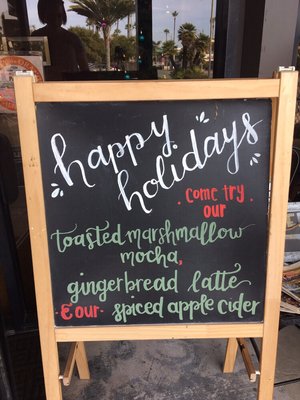 happy
holidays
· come try ·
our
toasted marshmallow
mocha,
gingerbread latte
· & our · spiced apple cider